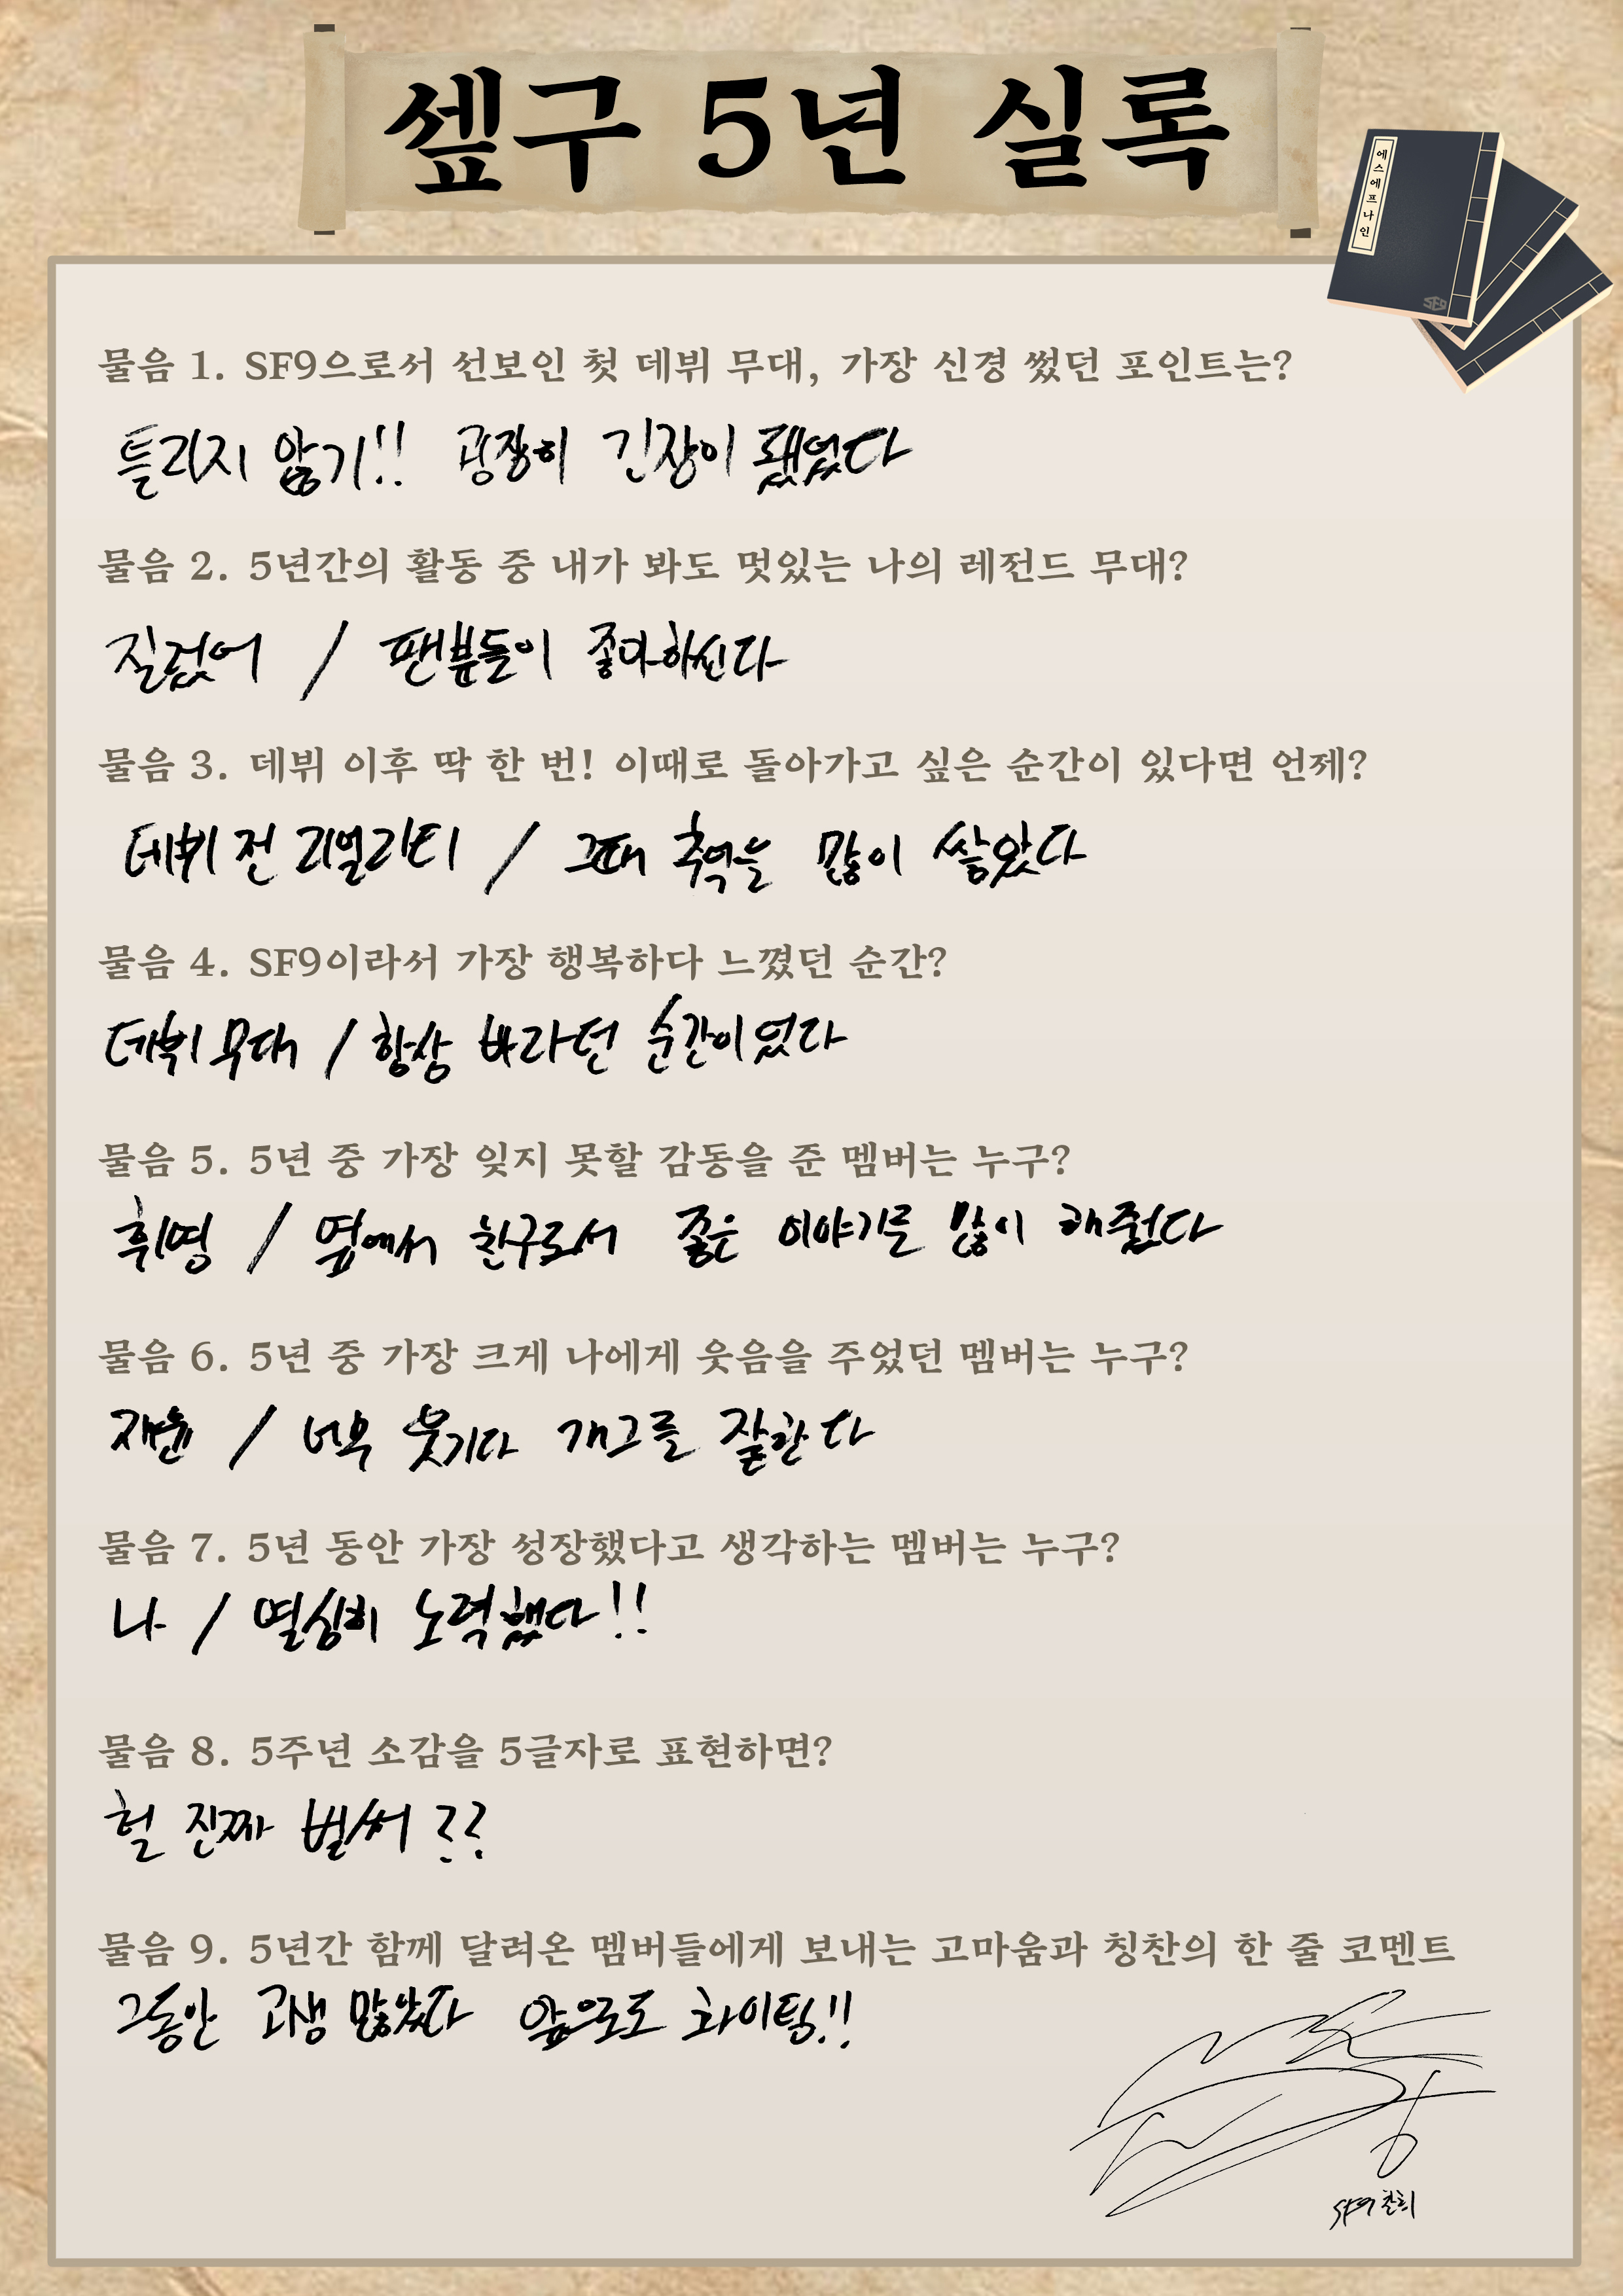 셒구 5년 실록
에스에프나인
SF9
물음 1. SF9으로서 선보인 첫 데뷔 무대, 가장 신경 썼던 포인트는?
틀리지 않기!! 굉장히 긴장이 됐었다
물음 2. 5년간의 활동 중 내가 봐도 멋있는 나의 레전드 무대?
질렀어 / 팬분들이 좋아하신다
물음 3. 데뷔 이후 딱 한 번! 이때로 돌아가고 싶은 순간이 있다면 언제?
데뷔 전 리얼리티 / 그때 추억을 많이 쌓았다
물음 4. SF9이라서 가장 행복하다 느꼈던 순간?
데뷔 무대 / 항상 바라던 순간이었다
물음 5. 5년 중 가장 잊지 못할 감동을 준 멤버는 누구?
휘영 / 옆에서 친구로서 좋은 이야기를 많이 해줬다
물음 6. 5년 중 가장 크게 나에게 웃음을 주었던 멤버는 누구?
재윤 / 너무 웃기다 개그를 잘한다
물음 7. 5년 동안 가장 성장했다고 생각하는 멤버는 누구?
나 / 열심히 노력했다!!
물음 8. 5주년 소감을 5글자로 표현하면?
헐 진짜 벌써??
물음 9. 5년간 함께 달려온 멤버들에게 보내는 고마움과 칭찬의 한 줄 코멘트
그동안 고생 많았다 앞으로도 화이팅!!
SF9 찬희